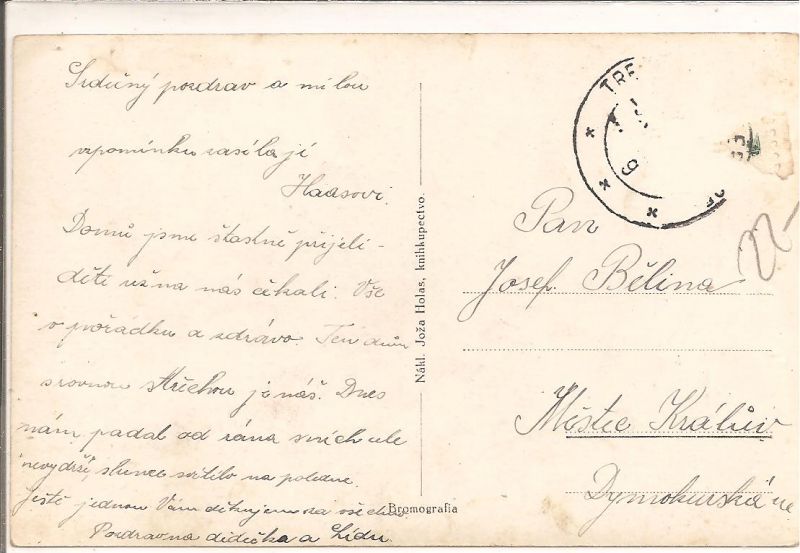 Srdečný pozdrav a milou
vzpomínku zasílají
Haasovi.
Domů jsme štastně přijeli -
děti už na nás čekali. Vše
v pořádku a zdrávo. Ten dům
s rovnou střechou je náš. Dnes
nám padal od rána sních ale
nevydrží, slunce svítilo na poledne.
Ještě jednou Vám děkujem za všechno
Pozdrav na dědečka a Lídu.
Nákl. Joža Holas, knihkupectvo.
Bromografia
TŘE
9
22-
Pan
Josef Bělina
Městec Králův
Dymokurská ul